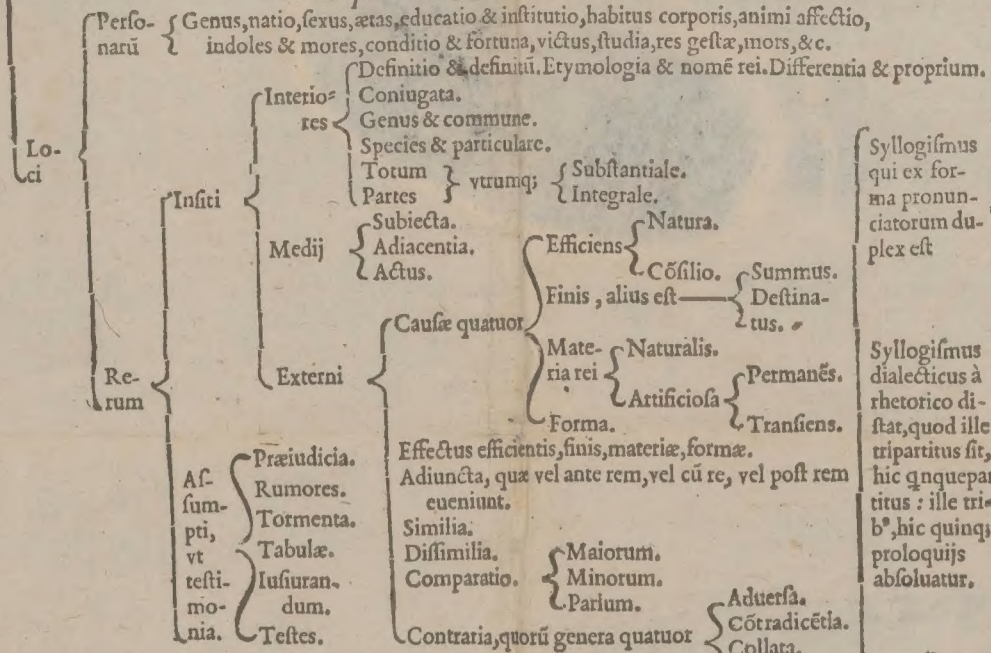 Perſo- Genus,natio,ſexus,ætas,educatio & inſtitutio,habitus corporis,animi affectio,
narū indoles & mores,conditio & fortuna,victus,ſtudia,res geſtæ,mors,&c.
Lo-
ci
Re-
rum
Inſiti
Interio=
res
Definitio & definitū.Etymologia & nomē rei.Differentia & proprium.
Coniugata.
Genus & commune.
Species & particulare.
Totum
Partes
vtrumq;
Subſtantiale.
Integrale.
Medij
Subiecta.
Adiacentia.
Actus.
Externi
Cauſæ quatuor
Efficiens
Natura.
Cōſilio.
Finis , alius eſt
Summus.
Deſtina-
tus.
Mate-
ria rei
Naturalis.
Artificioſa
Permanēs.
Tranſiens.
Forma.
Effectus efficientis,finis,materiæ,formæ.
Adiuncta, quæ vel ante rem,vel cū re, vel poſt rem
eueniunt.
Similia.
Diſſimilia.
Comparatio.
Maiorum.
Minorum.
Parium.
Contraria,quorū genera quatuor
Aduerſa.
Cōtradicētia.
Collata.
Aſ-
ſum-
pti,
vt
teſti-
mo-
nia.
Præiudicia.
Rumores.
Tormenta.
Tabulæ.
Iuſiuran-
dum.
Teſtes.
Syllogiſmus
qui ex for-
ma pronun-
ciatorum du-
plex eſt
Syllogiſmus
dialecticus à
rhetorico di-
ſtat,quod ille
tripartitus ſit,
hic qnquepar
titus : ille tri-
bꝰ,hic quinq;
proloquijs
abſoluatur.